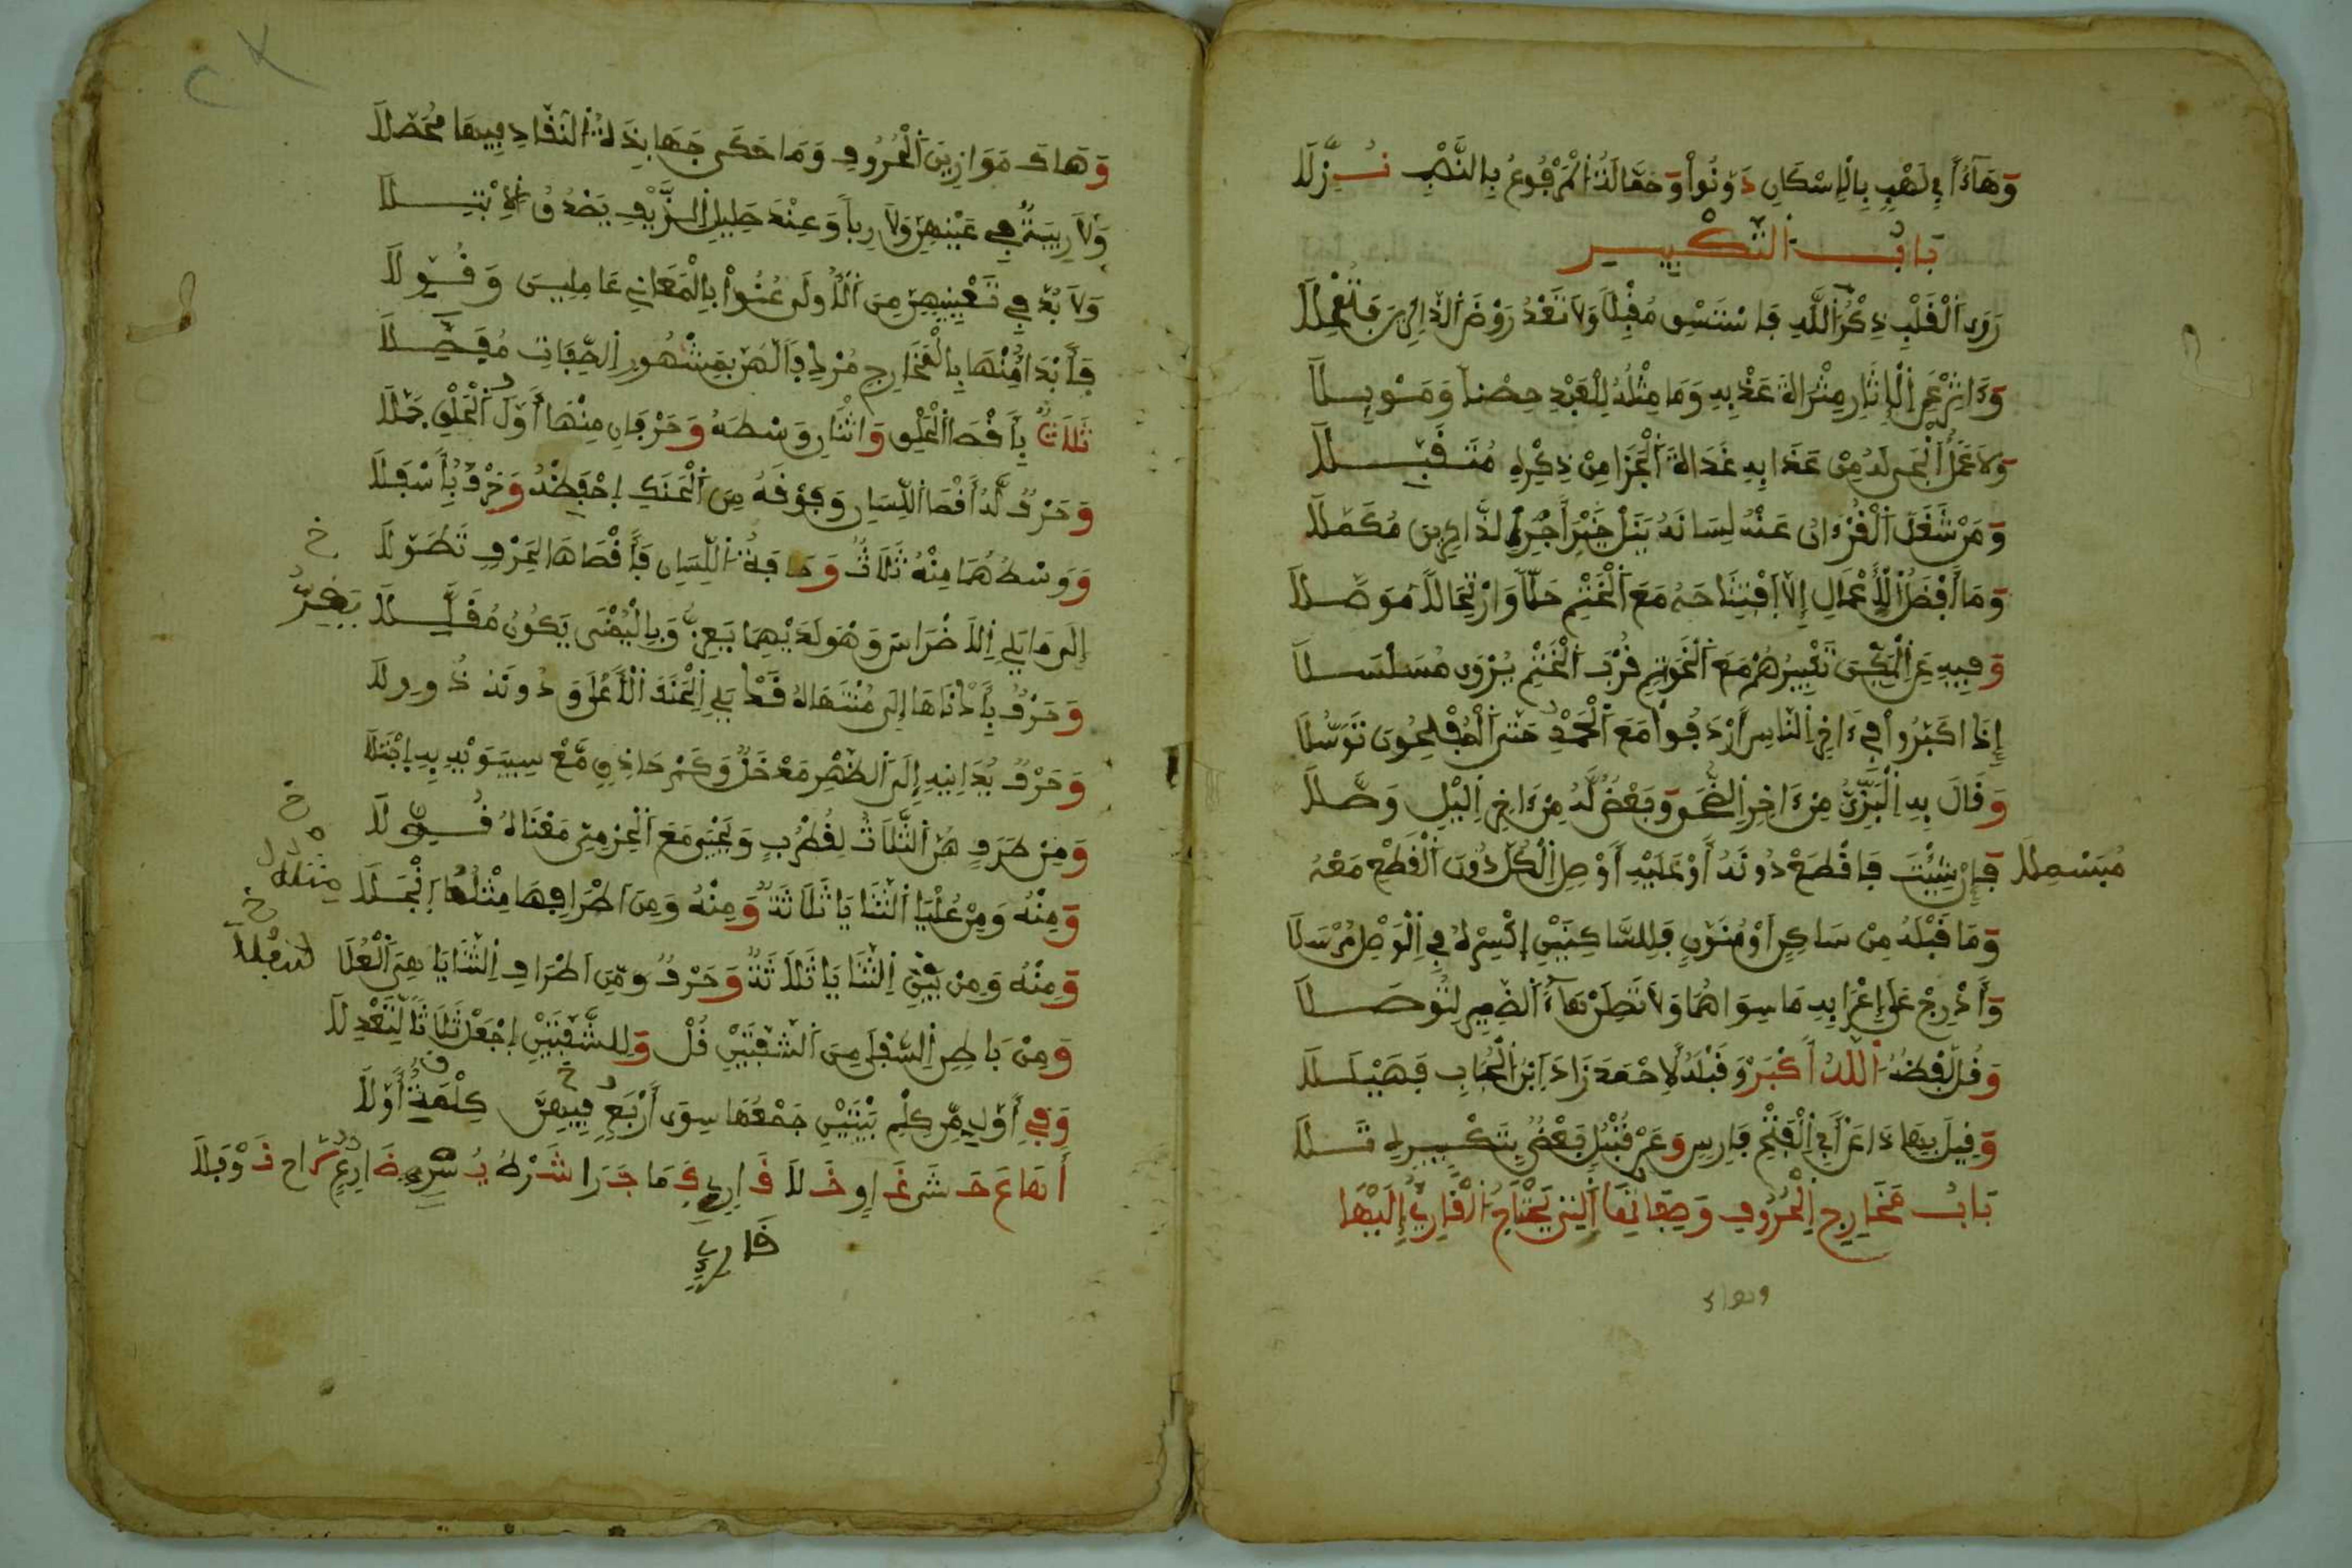 وَهَآءَ أَبِي لَهْبٍ بِالْإِسْكَانِ دَوَّنُواْ وَحَمَّالَةُ الْمَرْفُوعُ بِالنَّصْبِ نُـزِّلَا
بَابُ التَّكْبِيرِ
رَوَى الْقَلْبِ ذِكْرُ اللَّهِ فَاسْتَسْقِ مُقْبِلًا وَلَا تَعْدُ رَوْضَ الذَّاكِرِينَ فَتُمْحِلَا
وَءَاثِرْ عَنِ الْآثَارِ مِثْرَاةَ عَذْبِهِ وَمَا مِثْلُهُ لِلْعَبْدِ حِصْنًا وَمَوْئِلَا
وَلَا عَمَلٌ أَنْجَى لَهُ مِنْ عَذَابِهِ غَدَاةَ الْجَزَا مِنْ ذِكْرِهِ مُتَقَبَّلَا
وَمَنْ شَغَلَ الْقُرْءَانُ عَنْهُ لِسَانَهُ يَنَلْ خَيْرَ أَجْرِ الذَّاكِرِينَ مُكَمَّلَا
وَمَا أَفْضَلُ الْأَعْمَالِ إِلَّا افْتِتَاحَهُ مَعَ الْخَتْمِ حَلًّا وَارْتِحَالًا مُوَصَّلَا
وَفِيهِ عَنِ الْمَكِّينَ تَكْبِيرُهُمْ مَعَ الْخَوَاتِمِ قُرْبَ الْخَتْمِ يُرْوَى مُسَلْسَلَا
إِذَا كَبَّرُواْ فِي ءَاخِرِ النَّاسِ أَرْدَفُواْ مَعَ الْحَمْدِ حَتَّى الْمُفْلِحُونَ تَوَسُّلَا
وَقَالَ بِهِ الْبَزِّيُّ مِنْ ءَاخِرِ الضُّحَى وَبَعْضٌ لَهُ مِنْ ءَاخِرِ اللَّيْلِ وَصَّلَا
فَإِنْ شِئْتَ فَاقْطَعْ دُونَهُ أَوْ عَلَيْهِ أَوْ صِلِ الْكُلَّ دُونَ الْقَطْعِ مَعْهُ مُبَسْمِلَا
وَمَا قَبْلَهُ مِنْ سَاكِنٍ أَوْ مُنَوَّنٍ فَلِلسَّاكِنَيْنِ اكْسِرْهُ فِي الْوَصْلِ مُرْسَلَا
وَأَدْرِجْ عَلَى إِعْرَابِهِ مَا سِوَاهُمَا وَلَا تَصِلَنْ هَآءَ الضَّمِيرِ لِتُوصَلَا
وَقُلْ لَفْظُهُ اللَّهُ أَكْبَرْ وَقَبْلَهُ لِأَحْمَدَ زَادَ ابْنُ الْحُبَابِ فَهَيْلَلَا
وَقِيلَ بِهَذَا عَنْ أَبِي الْفَتْحِ فَارِسٍ وَعَنْ قُنْبُلٍ بَعْضٌ بِتَكْبِيرِهِ تَلَا
بَابُ مَخَارِجِ الْحُرُوفِ وَصِفَاتِهَا الَّتِي يَحْتَاجُ الْقَارِئُ إِلَيْهَا
وهاك
وَهَاكَ مَوَازِينَ الْحُرُوفِ وَمَا حَكَى جَهَابِذَةُ النُّقَّادِ فِيهَا مُحَصَّلَا
وَلَا رِيبَةٌ فِي عَيْنِهِنَّ وَلَا رِبًا وَعِنْدَ صَلِيلِ الزَّيْفِ يَصْدُقُ الِابْتِلَا
وَلَا بُدَّ فِي تَعْيِينِهِنَّ مِنَ الْأُولَى عُنُواْ بِالْمَعَانِي عَامِلِينَ وَقُوَّلَا
فَأَبْدَأُ مِنْهَا بِالْمَخَارِجِ مُرْدِفًا لَهُنَّ بِمَشْهُورِ الصِّفَاتِ مُفَصِّلَا
ثَلَاثٌ بِأَقْصَى الْحَلْقِ وَاثْنَانِ وَسْطَهُ وَحَرْفَانِ مِنْهَا أَوَّلَ الْحَلْقِ جُمِّلَا
وَحَرْفٌ لَهُ أَقْصَا اللِّسَانِ وَفَوْقَهُ مِنَ الْحَنَكِ احْفَظْهُ وَحَرْفٌ بِأَسْفَلَا
وَوَسْطُهُمَا مِنْهُ ثَلَاثٌ وَحَافَةُ اللِّسَانِ فَأَقْصَاهَا لِحَرْفٍ تَطَوَّلَا خ
إِلَى مَا يَلِي الْأَضْرَاسَ وَهْوَ لَدَيْهِمَا يَعِزُّ وَبِالْيُمْنَى يَكُونُ مُقَلَّلَا
وَحَرْفٌ بِأَدْنَاهَا إِلَى مُنْتَهَاهُ قَدْ يَلِي الْحَنَكَ الْأَعْلَى وَدُونَهُ ذُو وِلَا
وَحَرْفٌ يُدَانِيهِ إِلَى الظَّهْرِ مَدْخَلٌ وَكَمْ حَاذِقٍ مَعْ سِيبَوَيْهِ بِهِ اجْتَلَا
وَمِنْ طَرَفٍ هُنَّ الثَّلَاثُ لِقُطْرُبٍ وَيَحْيَى مَعَ الْجَرْمِيِّ مَعْنَاهُ قُوِّلَا خ
وَمِنْهُ وَمِنْ عُلْيَا الثَّنَايَا ثَلَاثَةٌ وَمِنْهُ وَمِنْ أَطْرَافِهَا مِثْلُهَا انْجَلَا
وَمِنْهُ وَمِنْ بَيْنِ الثَّنَايَا ثَلَاثَةٌ وَحَرْفٌ وَمِنْ أَطْرَافِ الثَّنَايَا هِيَ الْعُلَا خ
وَمِنْ بَاطِنِ السُّفْلَى مِنَ الشَّفَتَيْنِ قُلْ وَلِلشَّفَتَيْنِ اجْعَلْ ثَلَاثًا لِتَعْدِلَا
وَفِي أَوَّلٍ مِنْ كِلْمِ بَيْتَيْنِ جَمْعُهَا سِوَى أَرْبَعٍ فِيهِنَّ كِلْمَةٌ أَوَّلَا
أَهَاعَ حَشَى غَاوٍ خَلَا قَارِئٍ كَمَا جَرَا شَرْطُ يُسْرَى ضَارِعٍ لَاحَ نَوْفَلَا
قارئ